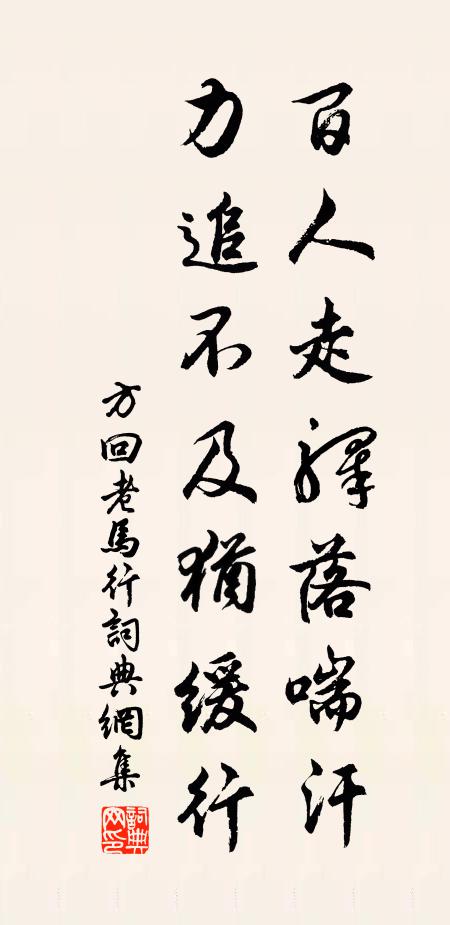 百人走驛落喘汗
力追不及猶緩行
方回老馬行詞典網集
詞典網印